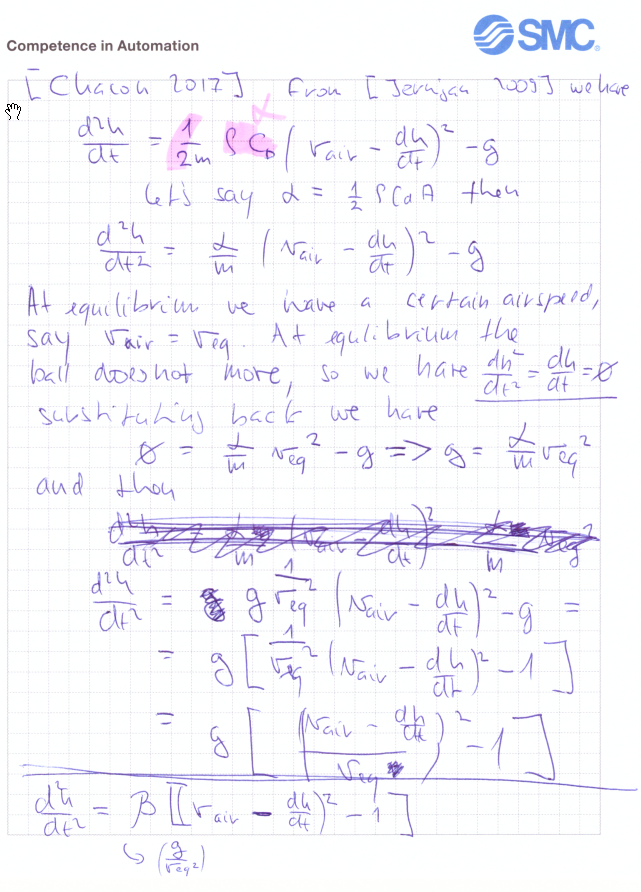 Competence in Automation
SMC
[Chacon 2017] From [Jernigan 2009] we have
d²h/dt = 1/2m ρ C_D (v_air - dh/dt)² - g
α
Let's say α = 1/2 ρ C_d A then
d²h/dt² = α/m (v_air - dh/dt)² - g
At equilibrium we have a certain airspeed,
say v_air = v_eq. At equlibrium the
ball does not move, so we have dh²/dt² = dh/dt = 0
substituting back we have
0 = α/m v_eq² - g => g = α/m v_eq²
and then
d²h/dt² = g 1/v_eq² (v_air - dh/dt)² - g =
= g [1/v_eq² (v_air - dh/dt)² - 1]
= g [((v_air - dh/dt)/v_eq)² - 1]
d²h/dt² = β [[v_air - dh/dt)² - 1]
↳ (g/v_eq²)